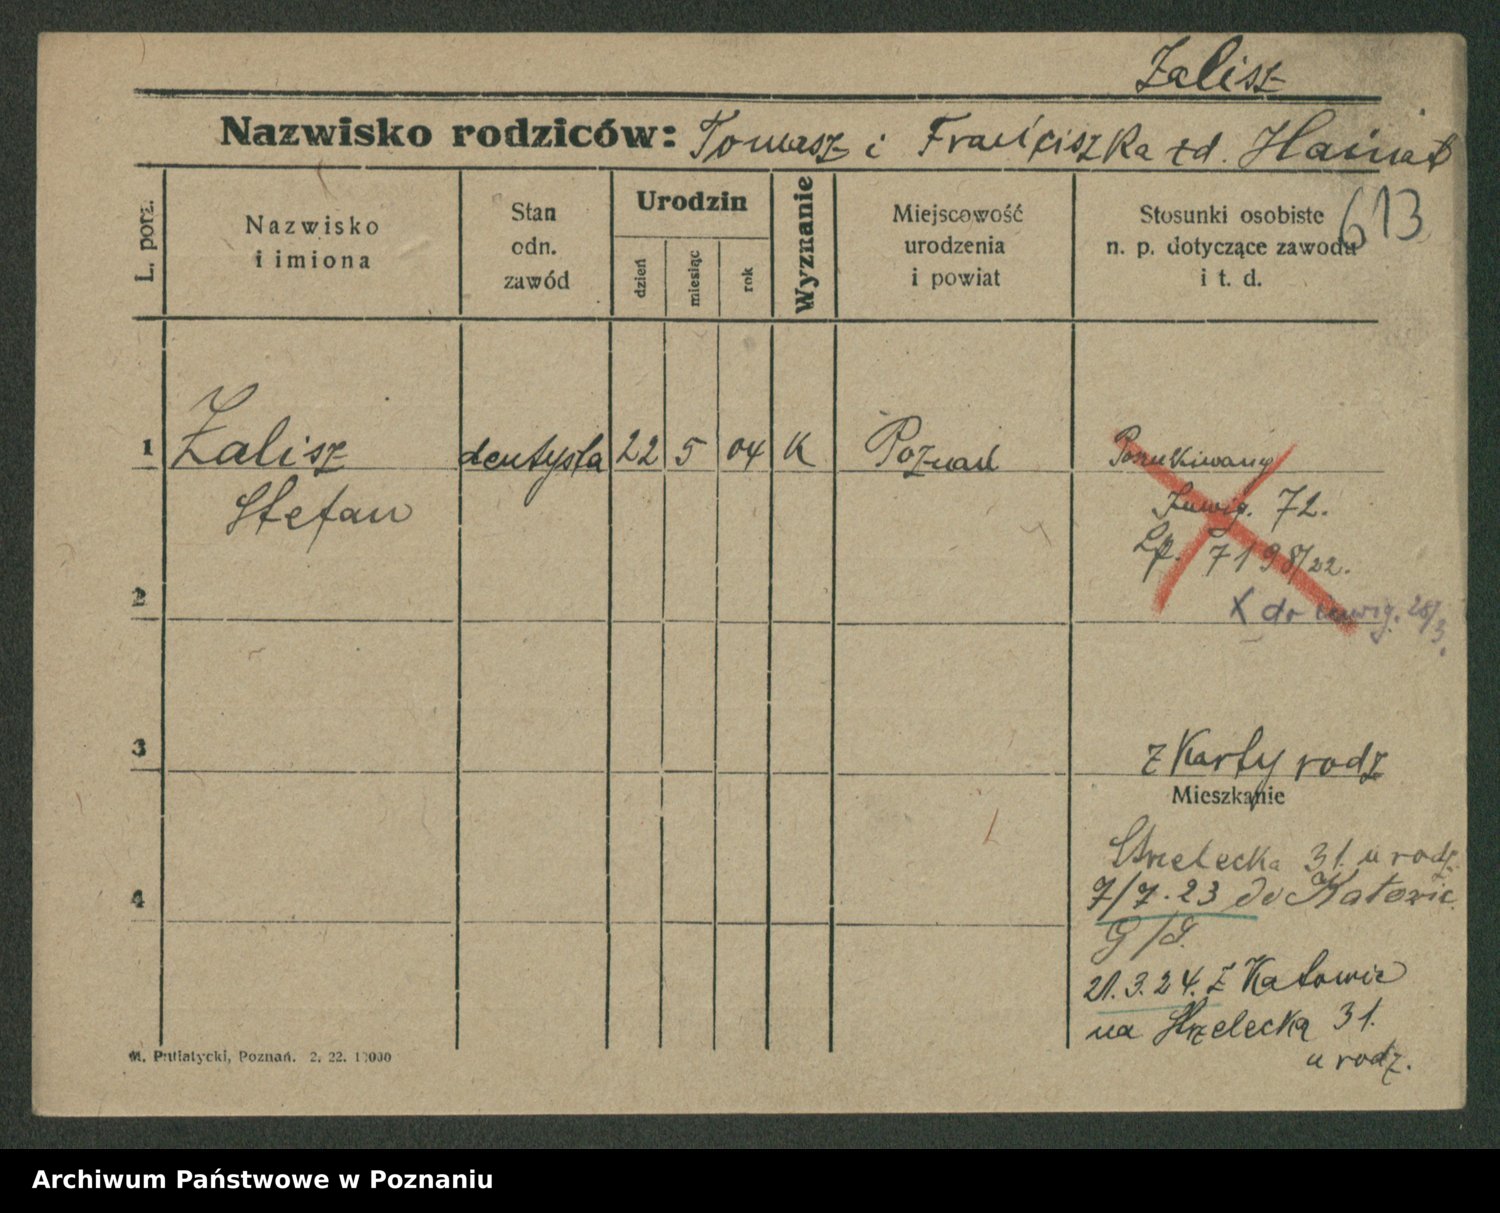 Zalisz
Nazwisko rodziców: Tomasz i Franciszka zd.
613
L. porz.
Nazwisko
i imiona
Stan
odn.
zawód
Urodzin
dzień
miesiąc
rok
Wyznanie
Miejscowość
urodzenia
i powiat
Stosunki osobiste
n. p. dotyczące zawodu
i t. d.
1 Zalisz dentysta 22 5 04 K Poznań Poszukiwany
Stefan
Inwig. 72.
Lp. 7198/22.
2
X do inwig. 28/3.
3
z Karty rodz
Mieszkanie
Strzelecka 31. u rodz.
4
7/7.23 do Katowic
G/S.
21.3.24. z Katowic
na Strzelecką 31.
u rodz.
M. Putiatycki, Poznań. 2. 22. 10000
Archiwum Państwowe w Poznaniu